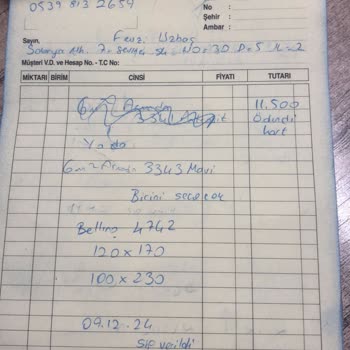 0539 813 2659
No :
Şehir :
Ambar :
Sayın,
Feriz Uzbaş
Mh. 7. sk. NO=30 D=5 K=2
Müşteri V.D. ve Hesap No. - T.C No:
MİKTARI BİRİM CİNSİ FİYATI TUTARI
6m2 11.500
334 Ödendi
kart
Yada
6m2 3343 Mavi
Birini seçecek
Bellino 4742
120 x 170
100 x 230
09.12.24
Sip verildi